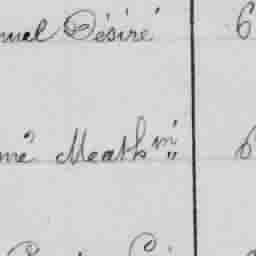 nuel Désiré 6
mé Meath m 6